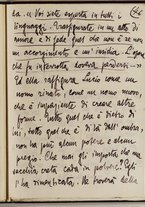 la. « Voi siete esperta in tutti i
linguaggi. Trasfigurate in un atto di
amore e di fede quel che non è se non
un accorgimento e un'insidia. È sapor
che fu interrotta doveva perdersi... »
Ed ella raffigura Lucio come un
nomo rinato, come un nomo nuovo,
che è impaziente di creare altre
forme. Tutto quel che è dietro di
lui, tutto quel che è di là dall'ombra,
non ha più alcun potere e alcun
pregio. Che mai gli importa che una
vecchia carta cada in polvere? Egli
l'ha rinunziata. Ne troverà della